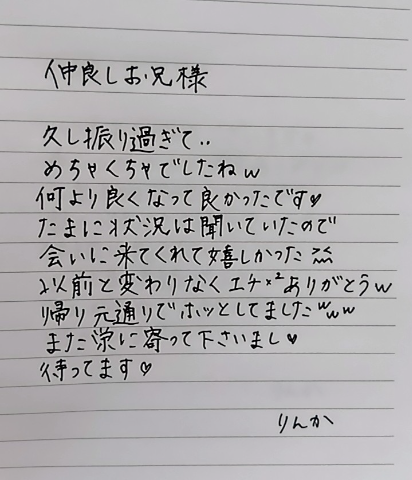 仲良しお兄様
久し振り過ぎて..
めちゃくちゃでしたねw
何より良くなって良かったです♡
たまに状況は聞いていたので
会いに来てくれて嬉しかった
以前と変わりなくエチ×²ありがとうw
帰り元通りでホッとしてましたwww
また栄に寄って下さいまし♡
待ってます♡
りんか